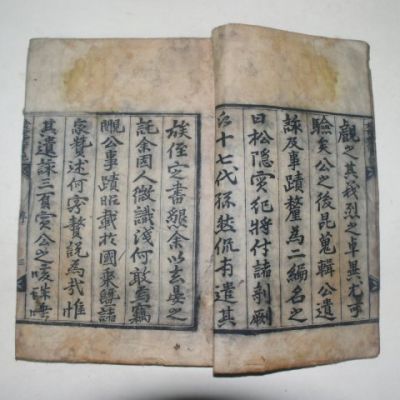 觀之其義烈之卓異尤可
驗矣公之後昆蒐輯公遺
詠及事蹟釐為二編名之
曰松隱實紀將付諸剞劂
十七代孫侃甫遣其
族侄書懇余以玄晏之
託余固人微識淺何敢當竊
公事蹟昭載於國乘諸
家贊述何容贅說為哉惟
其遺詠三百實公之咳珠